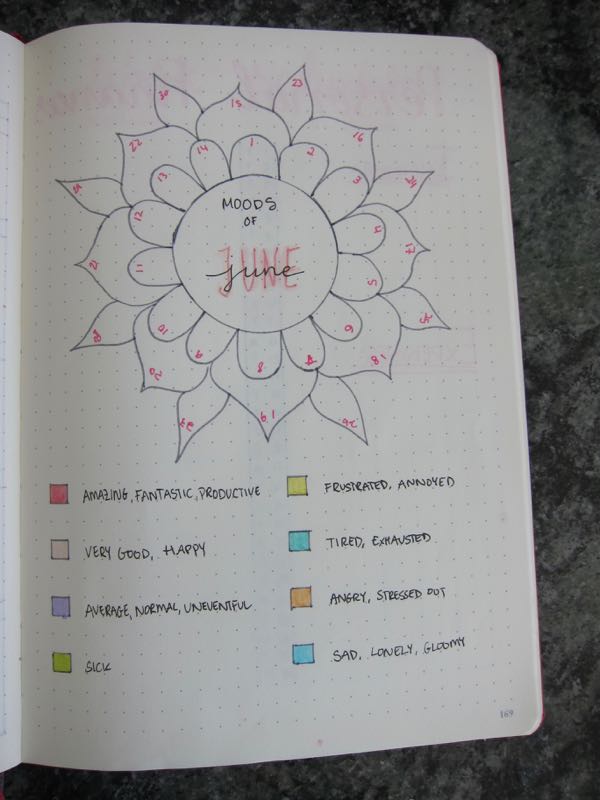 30
23
15
22
14
1
2
16
13
3
29
24
12
4
MOODS
OF
JUNE
june
21
11
5
17
28
10
6
25
20
9
8
18
27
19
26
AMAZING, FANTASTIC, PRODUCTIVE
VERY GOOD, HAPPY
AVERAGE, NORMAL, UNEVENTFUL
SICK
FRUSTRATED, ANNOYED
TIRED, EXHAUSTED
ANGRY, STRESSED OUT
SAD, LONELY, GLOOMY
169